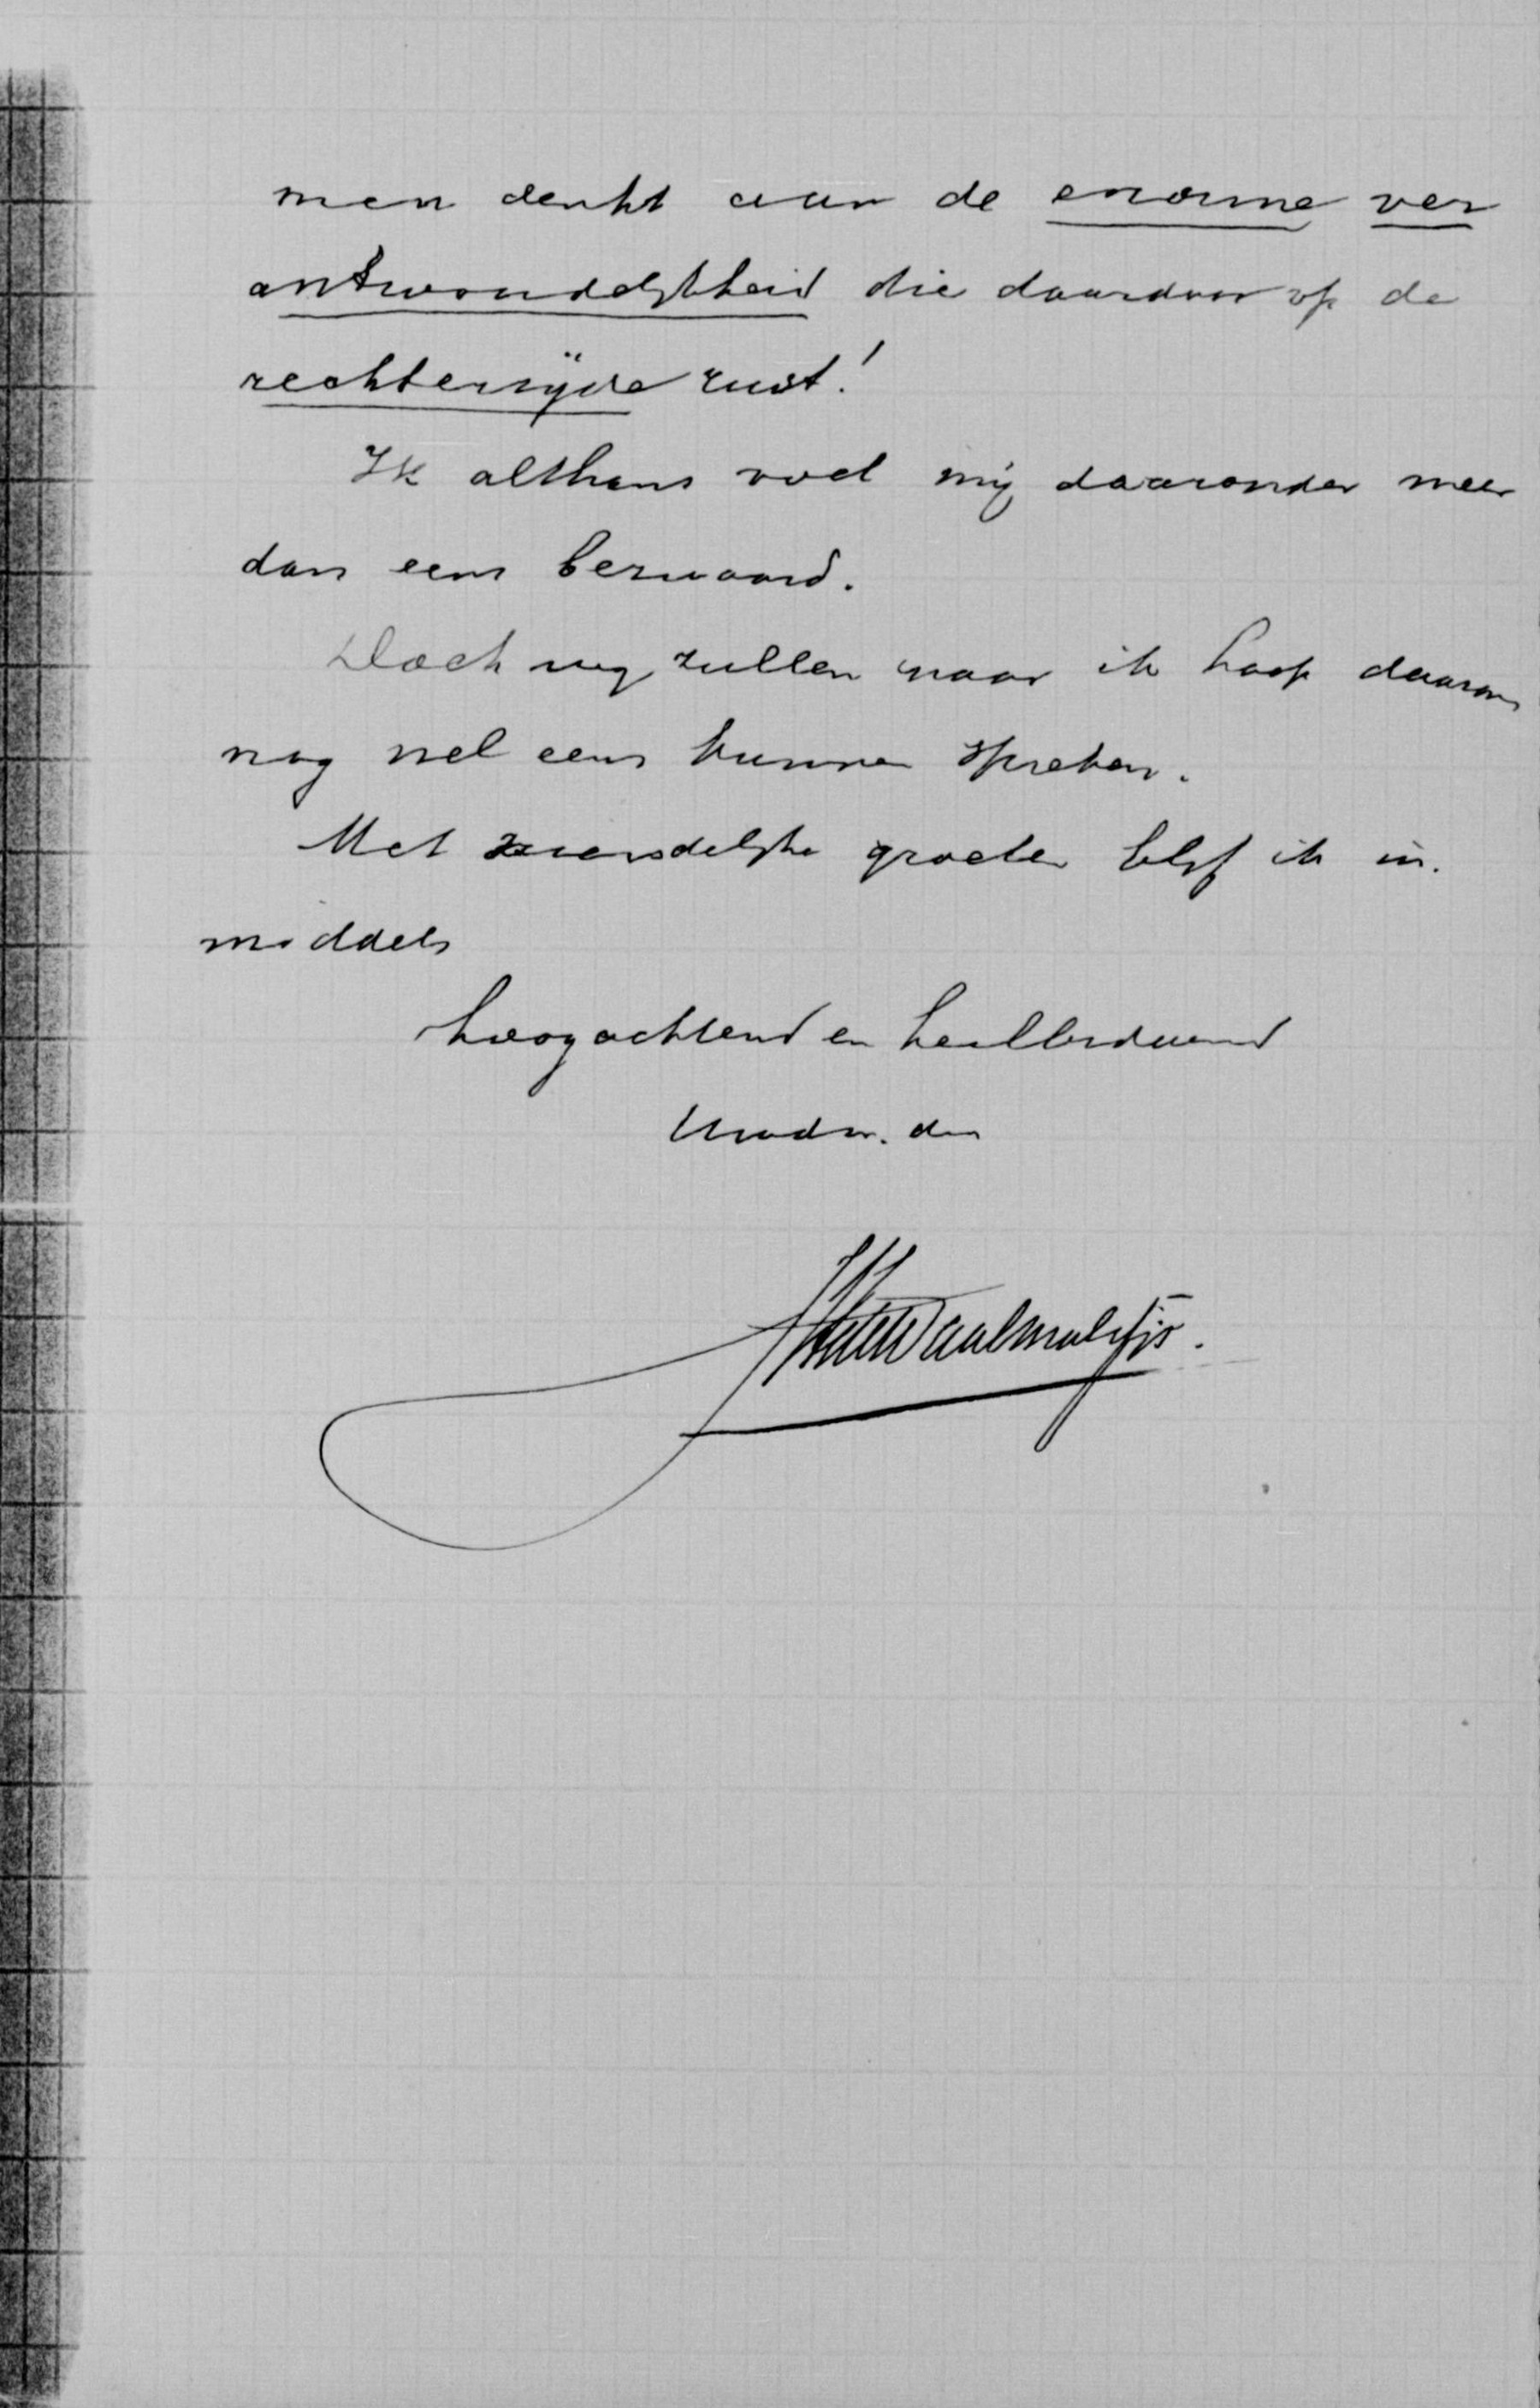 men denkt aan de enorme ver
antwoordelijkheid die daardoor op de
rechterzijde rust!
Ik althans voel mij daaronder meer
dan eens bezwaard.
Doch wij zullen naar ik hoop daarom
nog wel eens kunnen spreken.
Met vriendelijke groeten blijf ik in.
middels
hoogachtend en heilbiddend
Uwdw. dn
deWaalmalefijt.